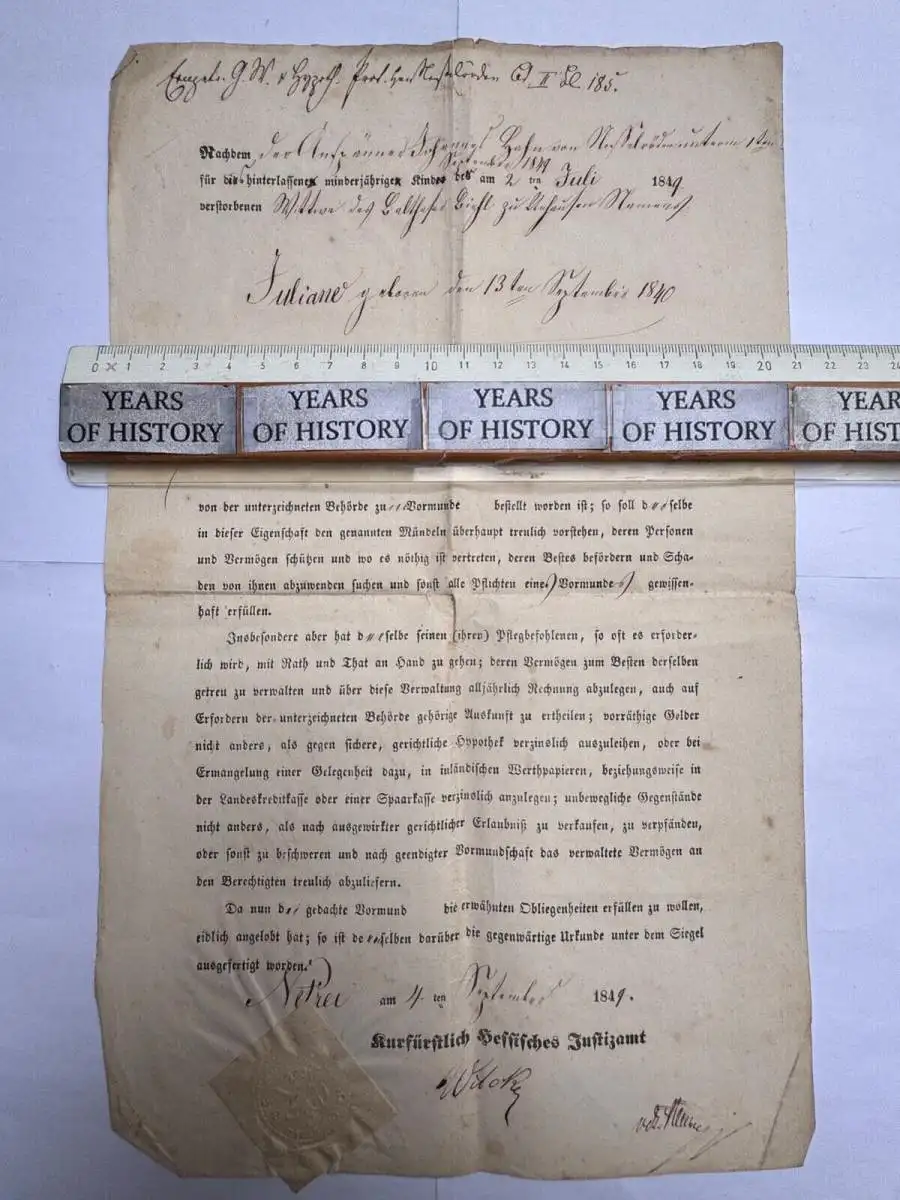 G. W. & Hypoth. Prot. von Nesselröden Bd II Bl. 185.
Nachdem der Johannes Hahn von Nesselröden unterm 1ten
September 1849
für die hinterlassene minderjährige Kinde des am 2 ten Juli 1849
verstorbenen Wittwe des Balthasar Biehl zu Namens
Juliane geboren den 13ten September 1840
0 1 2 3 4 5 6 7 8 9 10 11 12 13 14 15 16 17 18 19 20 21 22 23 24
YEARS YEARS YEARS YEARS YEAR
OF HISTORY OF HISTORY OF HISTORY OF HISTORY OF HIST
von der unterzeichneten Behörde zum Vormunde bestellt worden ist; so soll derselbe
in dieser Eigenschaft den genannten Mündeln überhaupt treulich vorstehen, deren Personen
und Vermögen schützen und wo es nöthig ist vertreten, deren Bestes befördern und Scha-
den von ihnen abzuwenden suchen und sonst alle Pflichten eines Vormundes gewissen-
haft erfüllen.
Insbesondere aber hat derselbe seinen (ihren) Pflegbefohlenen, so oft es erforder-
lich wird, mit Rath und That an Hand zu gehen; deren Vermögen zum Besten derselben
getreu zu verwalten und über diese Verwaltung alljährlich Rechnung abzulegen, auch auf
Erfordern der unterzeichneten Behörde gehörige Auskunft zu ertheilen; vorräthige Gelder
nicht anders, als gegen sichere, gerichtliche Hypothek verzinslich auszuleihen, oder bei
Ermangelung einer Gelegenheit dazu, in inländischen Werthpapieren, beziehungsweise in
der Landeskreditkasse oder einer Spaarkasse verzinslich anzulegen; unbewegliche Gegenstände
nicht anders, als nach ausgewirkter gerichtlicher Erlaubniß zu verkaufen, zu verpfänden,
oder sonst zu beschweren und nach geendigter Vormundschaft das verwaltete Vermögen an
den Berechtigten treulich abzuliefern.
Da nun der gedachte Vormund die erwähnten Obliegenheiten erfüllen zu wollen,
eidlich angelobt hat; so ist demselben darüber die gegenwärtige Urkunde unter dem Siegel
ausgefertigt worden.
Netra am 4 ten September 1849.
Kurfürstlich Hessisches Justizamt